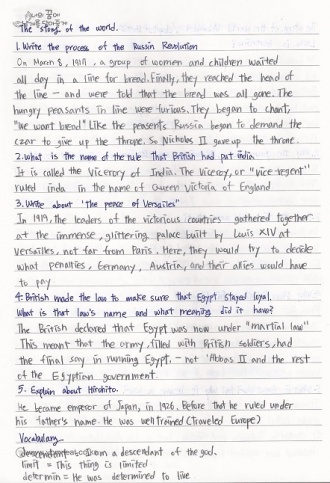 The story of the world.
1. Write the process of the Russin Revolution
On March 8, 1917, a group of women and children waited
all day in a line for bread. Finally, they reached the head of
the line – and were told that the bread was all gone. The
hungry peasants in line were furious. They began to chant,
"We want bread" Like the peasents Russia began to demand the
czar to give up the throne. So Nicholas II gave up the throne.
2. what is the name of the rule that British had put india
It is called the Viceroy of India. The Viceroy, or "vice regent"
ruled inda in the name of Queen Victoria of England
3. Write about 'the peace of Versailes"
In 1919, the leaders of the victorious countries gathered together
at the immense, glittering palace built by Louis XIV at
Versailles, not far from Paris. Here, they would try to decide
what penalties, Germany, Austria, and their allies would have
to pay
4. British made the law to make sure that Egypt stayed loyal.
What is that law's name and what meaning did it have?
The British declared that Egypt was now under "martial law"
This meant that the army, filled with British soldiers, had
the final say in running Egypt, – not 'Abbas II and the rest
of the Egyptian government.
5. Explain about Hirohito.
He became emperor of Japan, in 1926. Before that he ruled under
his father's name. He was well trained (Traveled Europe)
Vocabulary
descendent = I am a descendant of the god.
limit = This thing is limited
determin = He was determined to live